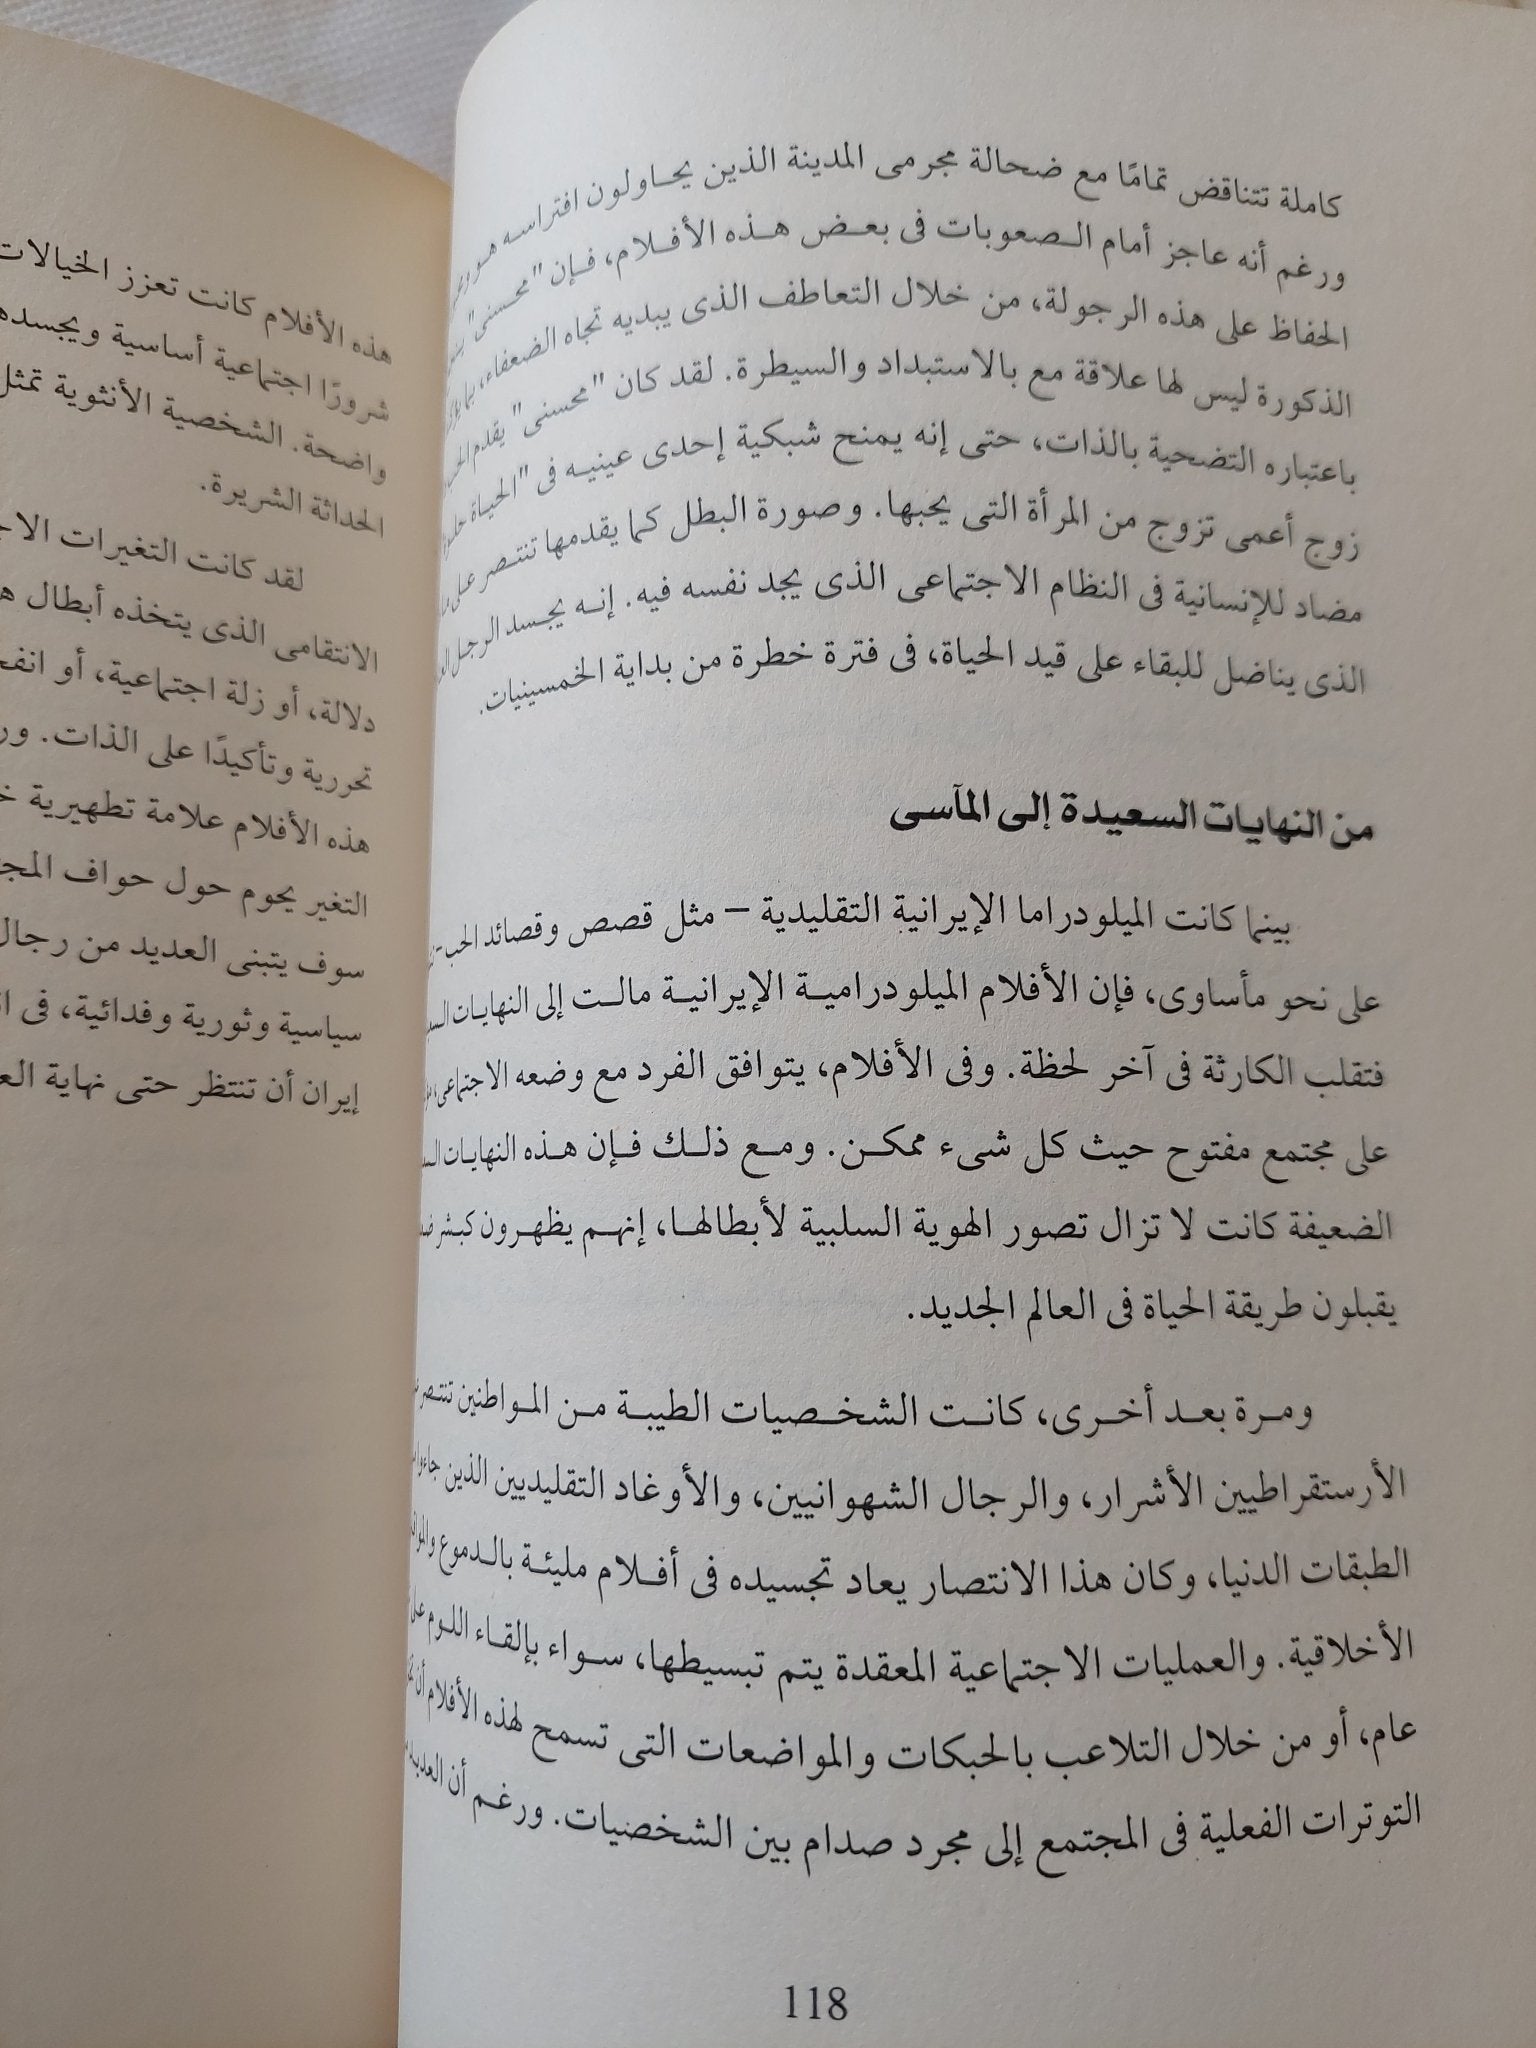 كاملة تتناقض تمامًا مع ضحالة مجرمى المدينة الذين يحاولون افتراسه هو
ورغم أنه عاجز أمام الصعوبات فى بعض هذه الأفلام، فإن "محسنى"
الحفاظ على هذه الرجولة، من خلال التعاطف الذى يبديه تجاه الضعفاء،
الذكورة ليس لها علاقة مع بالاستبداد والسيطرة. لقد كان "محسنى" يقدم
باعتباره التضحية بالذات، حتى إنه يمنح شبكية إحدى عينيه فى "الحياة
زوج أعمى تزوج من المرأة التى يحبها. وصورة البطل كما يقدمها تنتصر على
مضاد للإنسانية فى النظام الاجتماعى الذى يجد نفسه فيه. إنه يجسد الرجل
الذى يناضل للبقاء على قيد الحياة، فى فترة خطرة من بداية الخمسينيات.
من النهايات السعيدة إلى المآسى
بينما كانت الميلودراما الإيرانية التقليدية – مثل قصص وقصائد الحب-
على نحو مأساوى، فإن الأفلام الميلودرامية الإيرانية مالت إلى النهايات
فتقلب الكارثة فى آخر لحظة. وفى الأفلام، يتوافق الفرد مع وضعه الاجتماعى،
على مجتمع مفتوح حيث كل شىء ممكن. ومع ذلك فإن هذه النهايات
الضعيفة كانت لا تزال تصور الهوية السلبية لأبطالها، إنهم يظهرون كبشر
يقبلون طريقة الحياة فى العالم الجديد.
ومرة بعد أخرى، كانت الشخصيات الطيبة من المواطنين تنتصر
الأرستقراطيين الأشرار، والرجال الشهوانيين، والأوغاد التقليديين الذين
الطبقات الدنيا، وكان هذا الانتصار يعاد تجسيده فى أفلام مليئة بالدموع
الأخلاقية. والعمليات الاجتماعية المعقدة يتم تبسيطها، سواء بإلقاء اللوم
عام، أو من خلال التلاعب بالحبكات والمواضعات التى تسمح لهذه الأفلام أن
التوترات الفعلية فى المجتمع إلى مجرد صدام بين الشخصيات. ورغم أن
118
هذه الأفلام كانت تعزز الخيالات
شرورًا اجتماعية أساسية
واضحة. الشخصية الأنثوية تمثل
الحداثة الشريرة.
لقد كانت التغيرات
الانتقامى الذى يتخذه أبطال
دلالة، أو زلة اجتماعية، أو
تحررية وتأكيدًا على الذات.
هذه الأفلام علامة تطهيرية
التغير يحوم حول حواف
سوف يتبنى العديد من رجال
سياسية وثورية وفدائية، فى
إيران أن تنتظر حتى نهاية